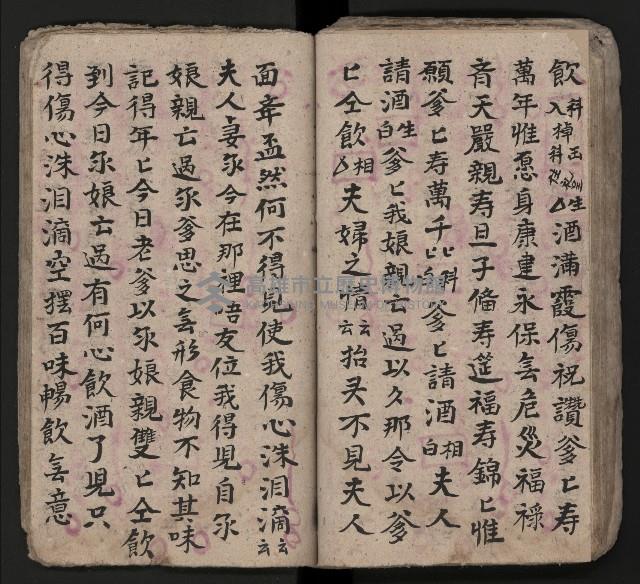 飲入科棹科正酒滿霞傷祝讚爹匕寿
萬年惟愿身康建永保無危災福禄
音天嚴親寿旦子俻寿筵福寿錦匕惟
願爹匕寿萬千匕科白爹匕請酒相白夫人
請酒生白爹匕我娘親亡過以久那令以爹
匕仝飲相夫婦之情云云抬头不見夫人
面牵盃然何不得見使我傷心洙泪滴云云
夫人妻尔今在那裡吾友位我得見自尔
娘親亡過尔爹思之無形食物不知其味
記得年匕今日老爹以尔娘親雙匕仝飲
到今日尔娘亡過有何心飲酒了見只
得傷心洙泪滴空摆百味暢飲無意
高雄市立歷史博物館